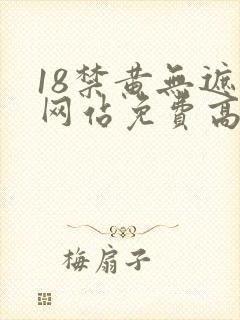 18禁黄無遮
网佔免費高
梅扇子